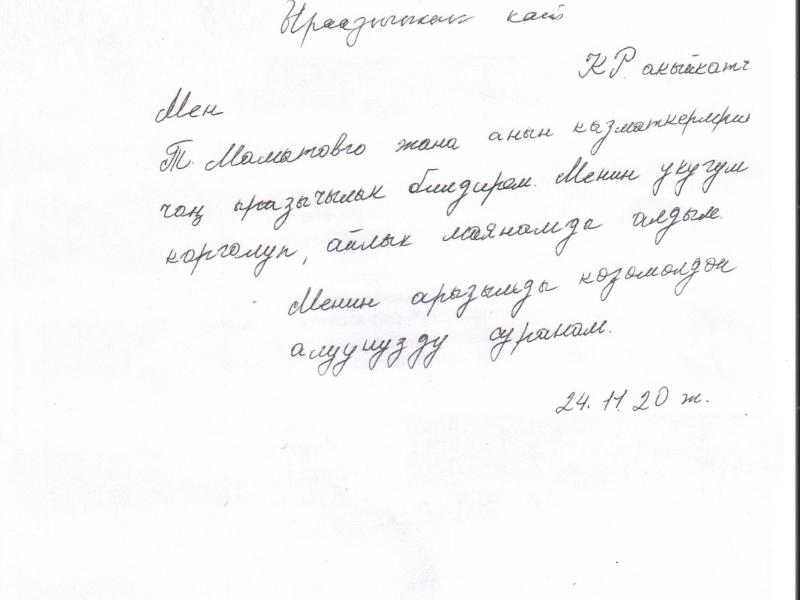 Ыраазычылык кат
КР акыйкатч
Мен
Т. Маматовго жана анын кызматкерлерин
чоң ыразычылык билдирем. Менин укугум
корголуп, айлык маянамды алдым.
Менин арызымды көзөмөлдөн
алууңузду суранам.
24.11.20 ж.